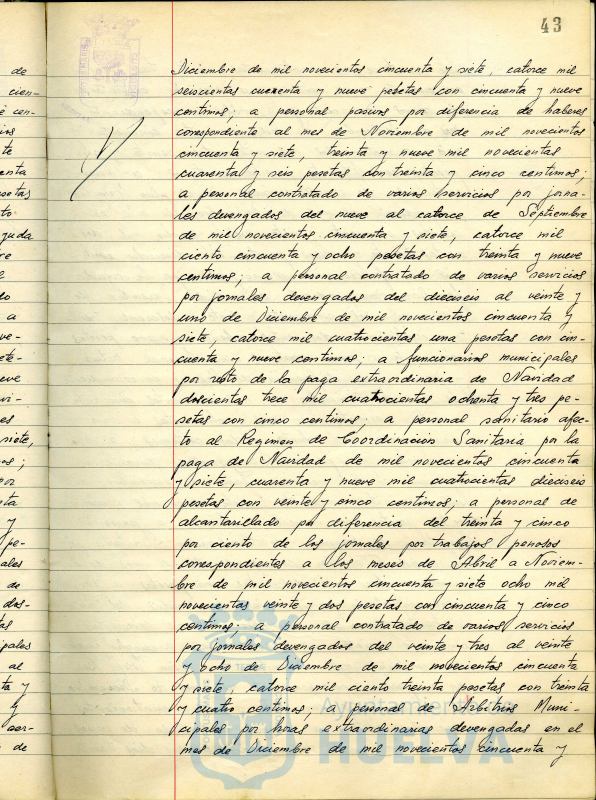 43
Diciembre de mil novecientos cincuenta y siete, catorce mil
seiscientas cuarenta y nueve pesetas con cincuenta y nueve
centimos; a personal pasivos por diferencia de haberes
correspondiente al mes de Noviembre de mil novecientos
cincuenta y siete, treinta y nueve mil novecientas
cuarenta y seis pesetas con treinta y cinco centimos;
a personal contratado de varios servicios por jorna-
les devengados del nueve al catorce de Septiembre
de mil novecientos cincuenta y siete, catorce mil
ciento cincuenta y ocho pesetas con treinta y nueve
centimos; a personal contratado de varios servicios
por jornales devengados del dieciseis al veinte y
uno de Diciembre de mil novecientos cincuenta y
siete, catorce mil cuatrocientas una pesetas con cin-
cuenta y nueve centimos; a funcionarios municipales
por resto de la paga extraordinaria de Navidad
doscientas trece mil cuatrocientas ochenta y tres pe-
setas con cinco centimos; a personal sanitario afec-
to al Regimen de Coordinacion Sanitaria por la
paga de Navidad de mil novecientos cincuenta
y siete, cuarenta y nueve mil cuatrocientas dieciseis
pesetas con veinte y cinco centimos; a personal de
alcantarillado por diferencia del treinta y cinco
por ciento de los jornales por trabajos penosos
correspondientes a los meses de Abril a Noviem-
bre de mil novecientos cincuenta y siete ocho mil
novecientas veinte y dos pesetas con cincuenta y cinco
centimos; a personal contratado de varios servicios
por jornales devengados del veinte y tres al veinte
y ocho de Diciembre de mil novecientos cincuenta
y siete, catorce mil ciento treinta pesetas con treinta
y cuatro centimos; a personal de Arbitrios Muni-
cipales por horas extraordinarias devengadas en el
mes de Diciembre de mil novecientos cincuenta y
Ayuntamiento
HUELVA